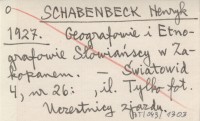 o
SCHABENBECK Henryk
1927. Geografowie i Etno-
grafowie Słowiańscy w Za-
kopanem. – Światowid
4, nr 26: , il. Tylko fot.
Uczestnicy zjazdu.